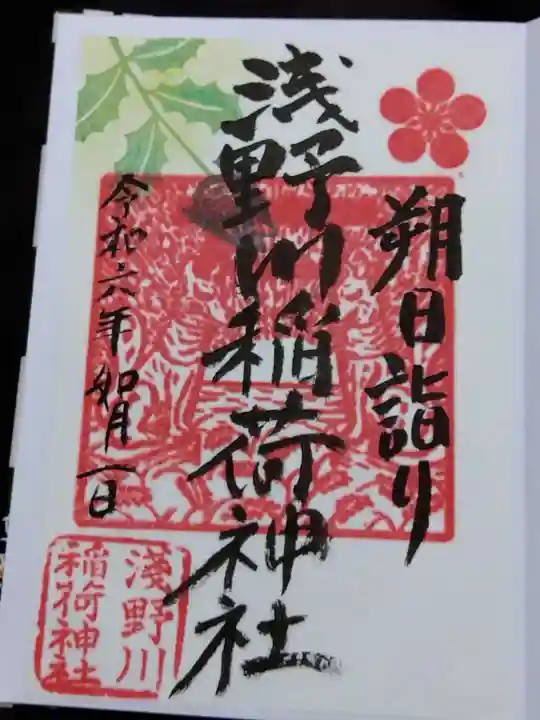 朔日詣り
浅野川稲荷神社
令和六年如月一日
淺野川
稲荷神社